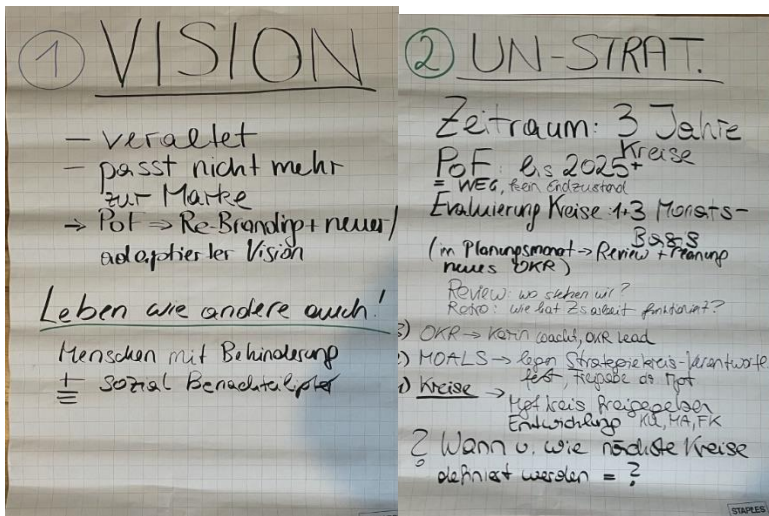 1 VISION
- veraltet
- passt nicht mehr
zur Marke
→ PoF → Re-Branding + neuer/
adaptierter Vision
Leben wie andere auch!
Menschen mit Behinderung
+ sozial Benachteiligter
2 UN-STRAT.
Zeitraum: 3 Jahre
Kreise
PoF: bis 2025+
= WEG, kein Endzustand
Evaluierung Kreise: 1+3 Monats-
Basis
(im Planungsmonat → Review + Planung
neues OKR)
Review: wo stehen wir?
Retro: wie hat Zsarbeit funktioniert?
3) OKR → Karin coacht, OKR lead
2) MOALS → legen Strategiekreis-Verantwortl.
fest, Freigabe dr. Mgt
1) Kreise →
Mgtkreis freigegeben
Entwicklung KU, MA, FK
? Wann u. wie nächste Kreise
definiert werden = ?
STAPLES